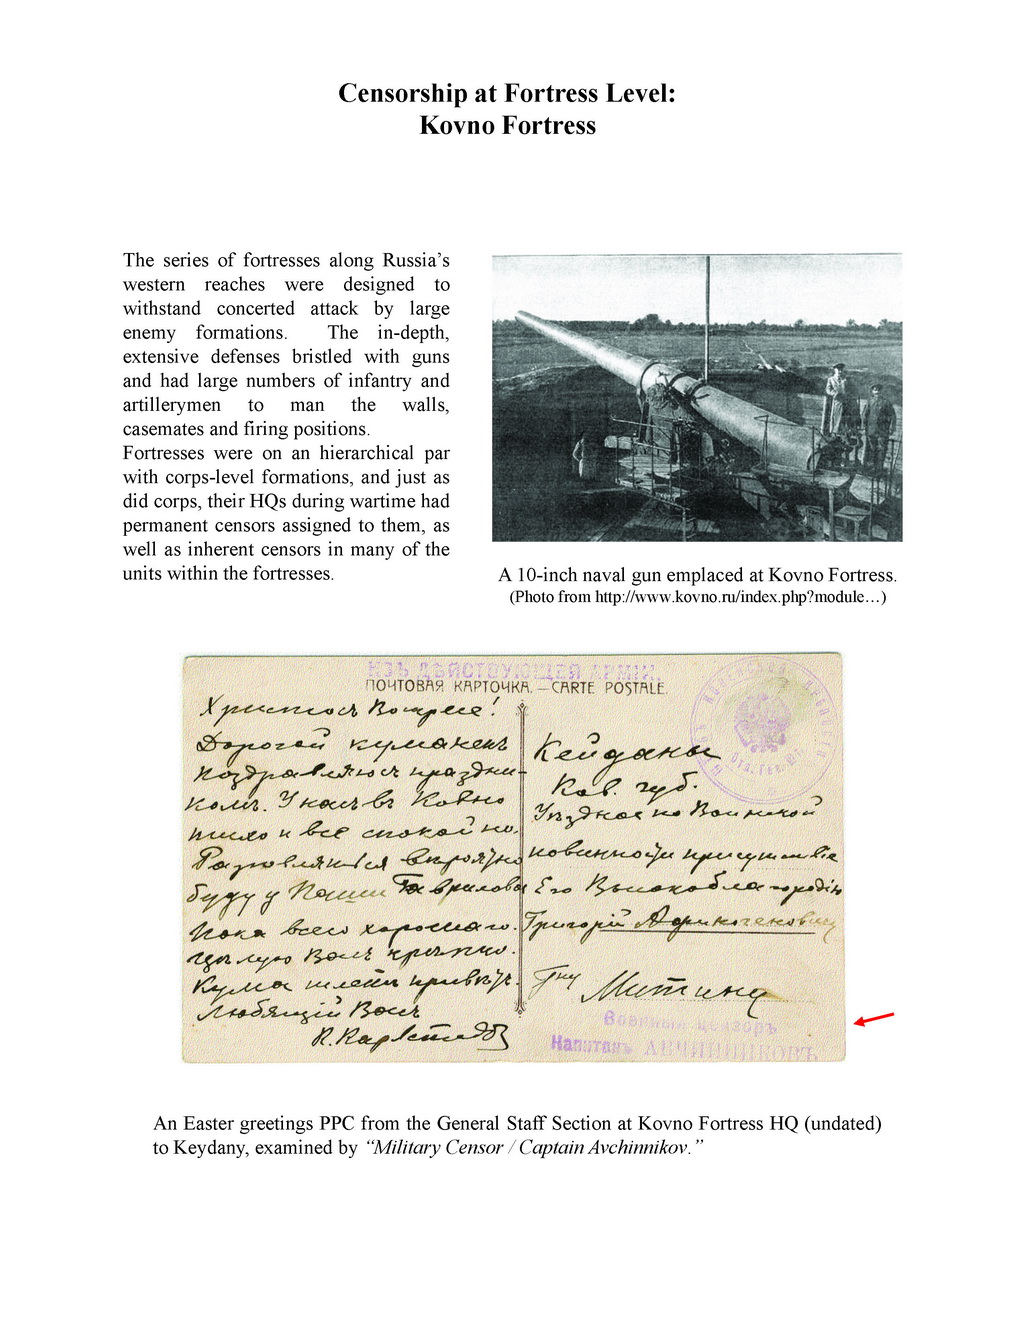 Censorship at Fortress Level:
Kovno Fortress
The series of fortresses along Russia’s
western reaches were designed to
withstand concerted attack by large
enemy formations. The in-depth,
extensive defenses bristled with guns
and had large numbers of infantry and
artillerymen to man the walls,
casemates and firing positions.
Fortresses were on an hierarchical par
with corps-level formations, and just as
did corps, their HQs during wartime had
permanent censors assigned to them, as
well as inherent censors in many of the
units within the fortresses.
A 10-inch naval gun emplaced at Kovno Fortress.
(Photo from http://www.kovno.ru/index.php?module…)
ИЗЪ ДѢЙСТВУЮЩЕЙ АРМІИ.
ПОЧТОВАЯ КАРТОЧКА. — CARTE POSTALE.
Христосъ Воскресе!
Дорогой куманекъ
поздравляю съ праздни-
комъ. У насъ въ Ковно
тихо и все спокойно.
Разговляться вѣроятно
буду у Паши Гаврилова
Пока всего хорошаго.
цѣлую Васъ крѣпко.
Кума шлетъ привѣтъ.
Любящій Васъ
Кейданы
Ков. губ.
Уѣздное по Воинской
повинности присутствіе
Его Высокоблагородію
Григорій
Гну Митину
Военный цензоръ
Капитанъ АВЧИННИКОВЪ
An Easter greetings PPC from the General Staff Section at Kovno Fortress HQ (undated)
to Keydany, examined by “Military Censor / Captain Avchinnikov.”